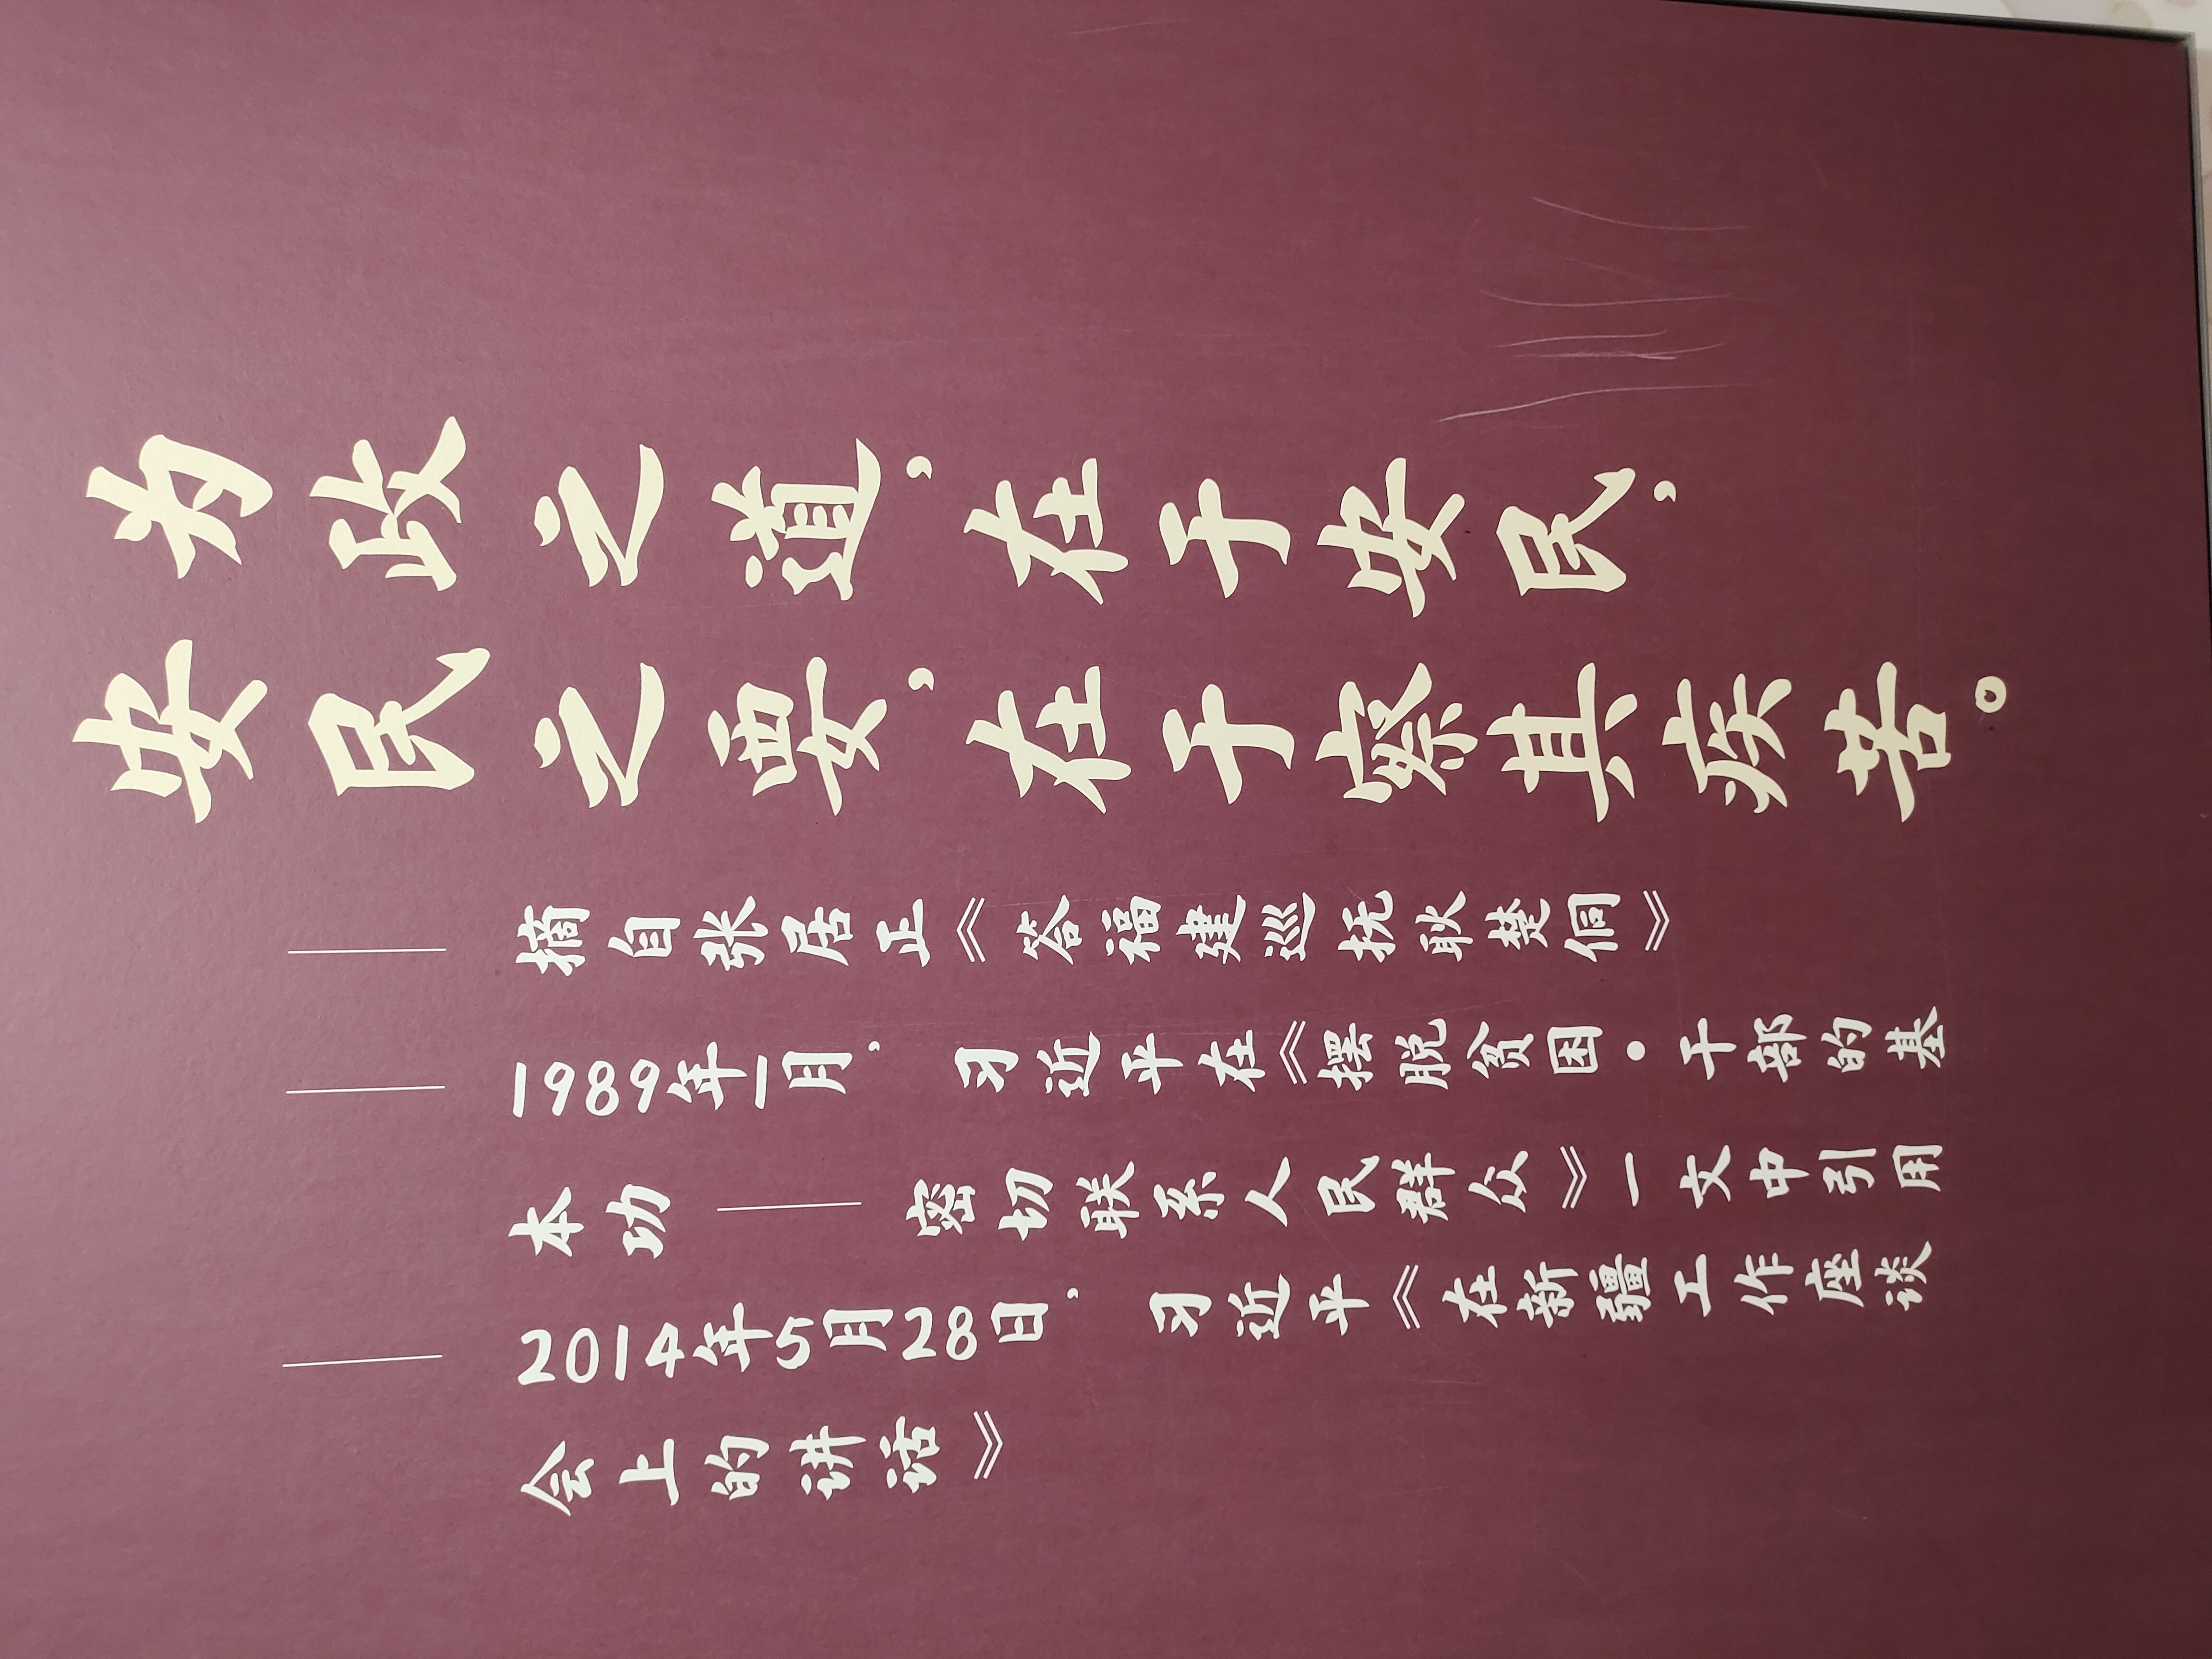 为政之道，在于安民，
安民之要，在于察其疾苦。
——摘自张居正《答福建巡抚耿楚侗》
——1989年1月，习近平在《摆脱贫困·干部的基
本功——密切联系人民群众》一文中引用
——2014年5月28日，习近平《在新疆工作座谈
会上的讲话》